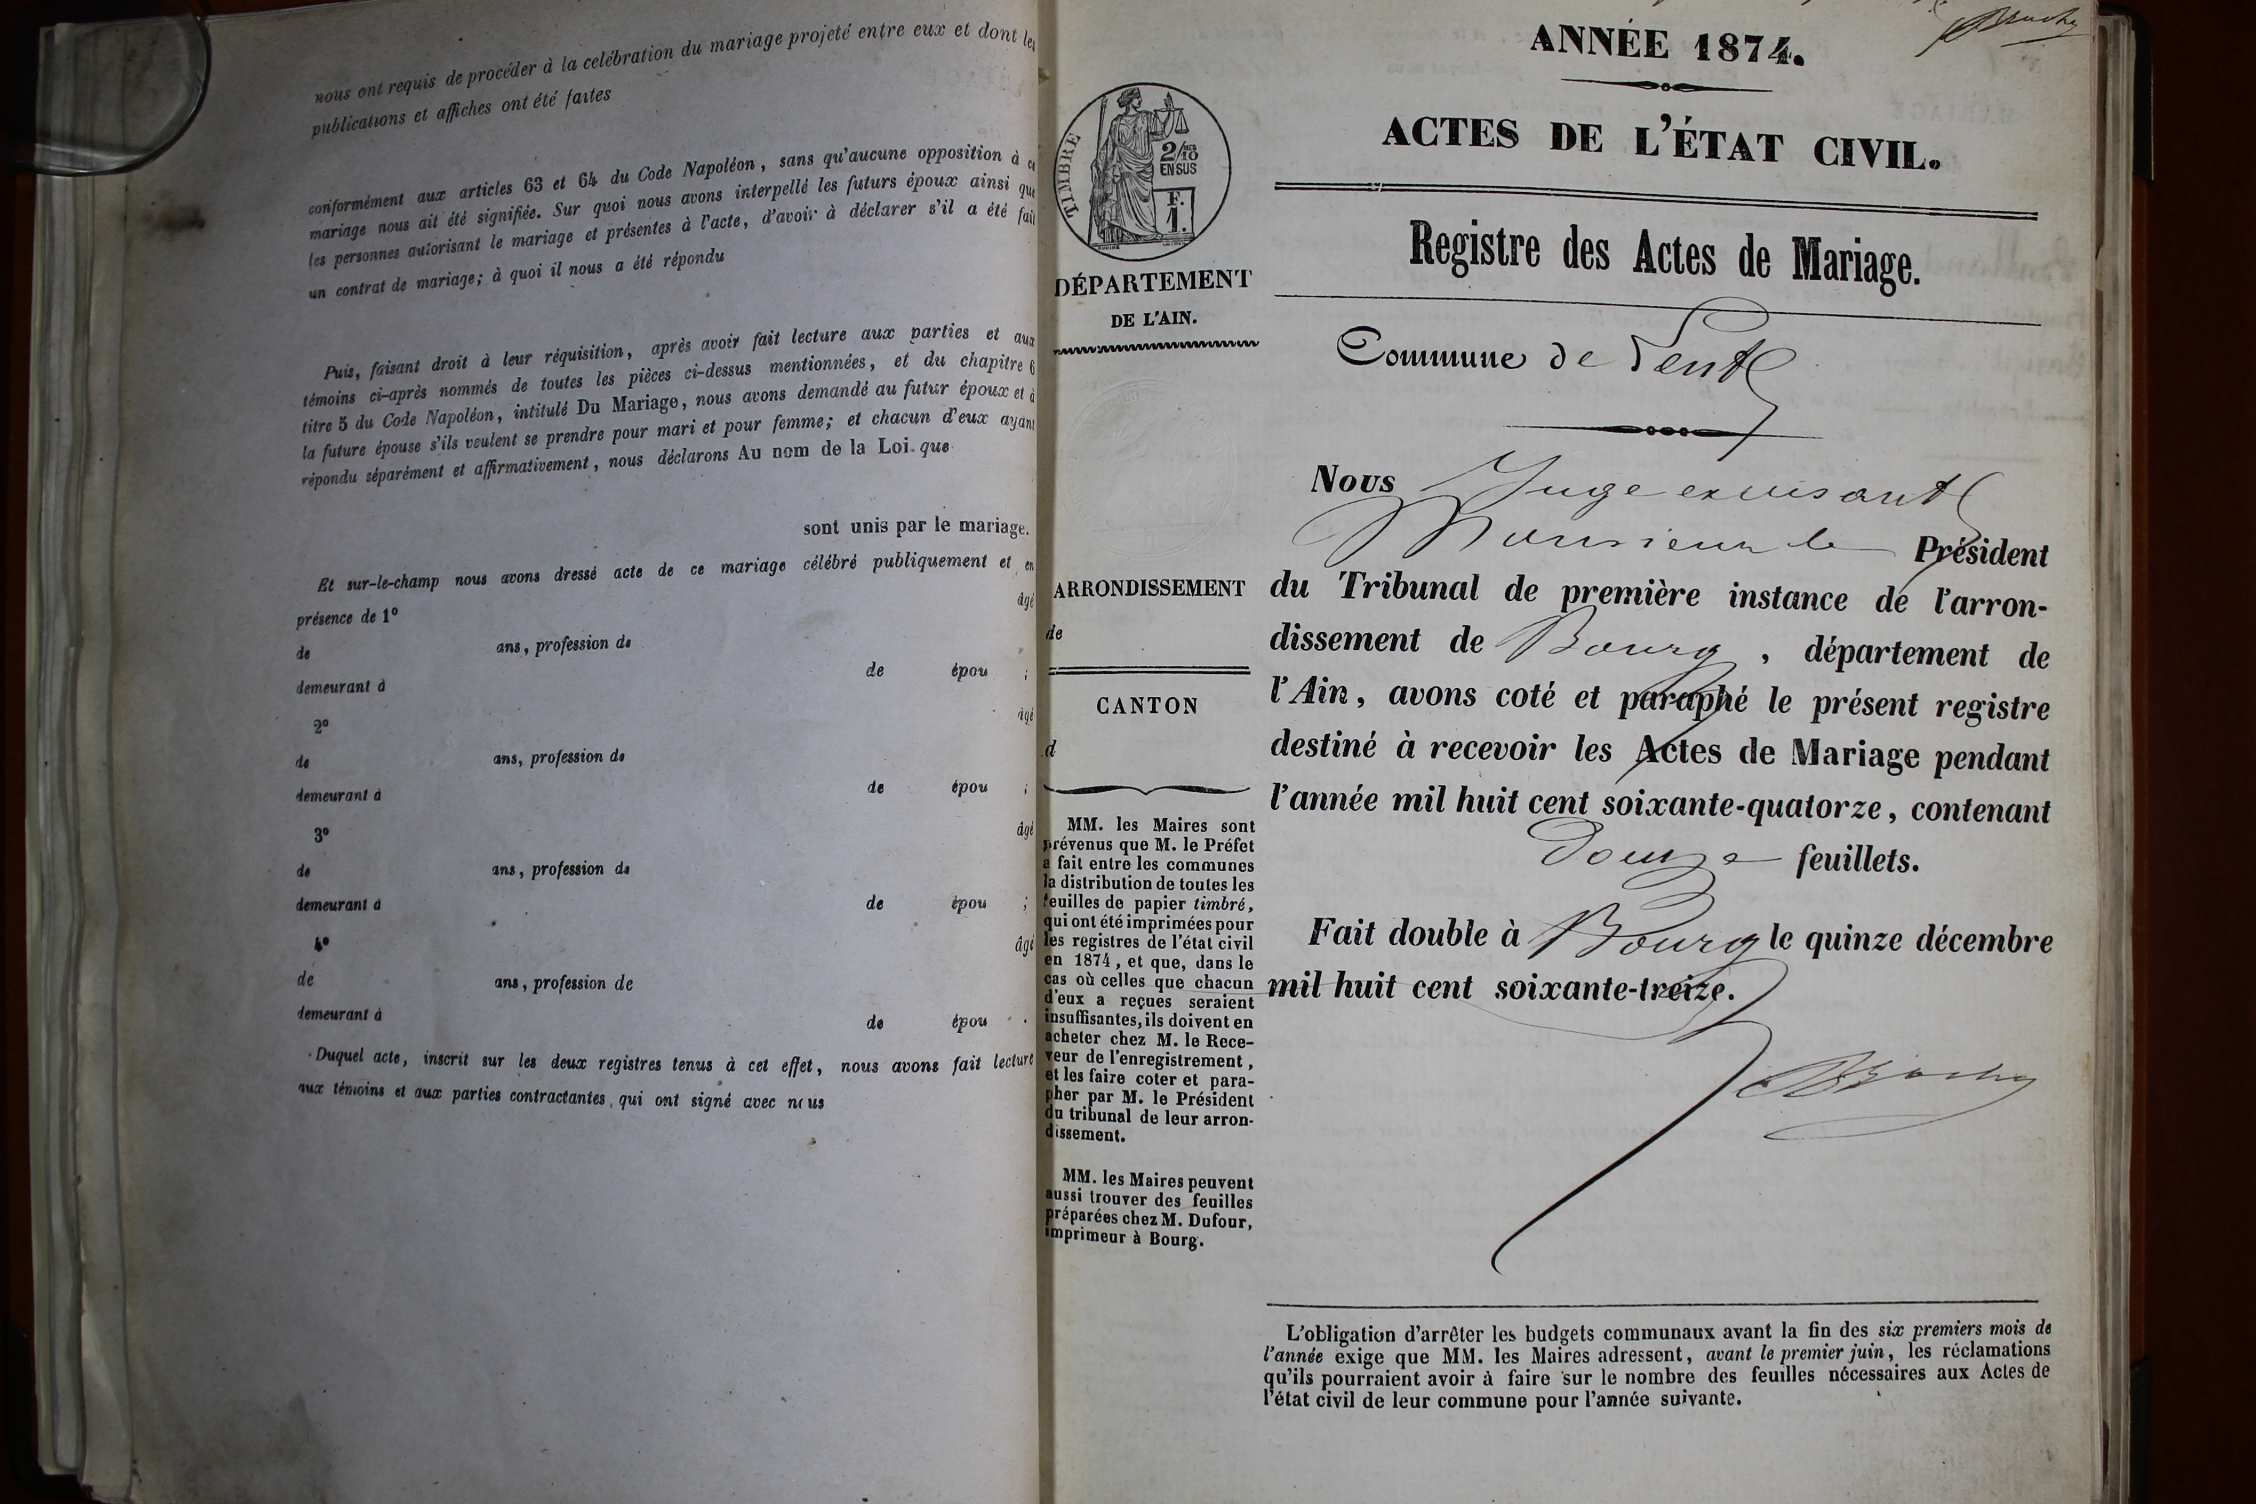 nous ont requis de procéder à la celébration du mariage projeté entre eux et dont les
publications et affiches ont été faites
conformément aux articles 63 et 64 du Code Napoléon, sans qu'aucune opposition à ce
mariage nous ait été signifiée. Sur quoi nous avons interpellé les futurs époux ainsi que
les personnes autorisant le mariage et présentes à l'acte, d'avoir à déclarer s'il a été fait
un contrat de mariage; à quoi il nous a été répondu
Puis, faisant droit à leur réquisition, après avoir fait lecture aux parties et aux
témoins ci-après nommés de toutes les pièces ci-dessus mentionnées, et du chapitre 6
titre 5 du Code Napoléon, intitulé Du Mariage, nous avons demandé au futur époux et à
la future épouse s'ils veulent se prendre pour mari et pour femme; et chacun d'eux ayant
répondu séparément et affirmativement, nous déclarons Au nom de la Loi que
sont unis par le mariage.
Et sur-le-champ nous avons dressé acte de ce mariage célébré publiquement et en
présence de 1º âgé
de ans, profession de
demeurant à de épou ;
2º âgé
de ans, profession de
demeurant à de épou ;
3º âgé
de ans, profession de
demeurant à de épou ;
4º âgé
de ans, profession de
demeurant à de épou .
Duquel acte, inscrit sur les deux registres tenus à cet effet, nous avons fait lecture
aux témoins et aux parties contractantes, qui ont signé avec nous
TIMBRE
2/10
EN SUS
F.
1.
DÉPARTEMENT
DE L'AIN.
ARRONDISSEMENT
de
CANTON
d
MM. les Maires sont
prévenus que M. le Préfet
a fait entre les communes
la distribution de toutes les
feuilles de papier timbré,
qui ont été imprimées pour
les registres de l'état civil
en 1874, et que, dans le
cas où celles que chacun
d'eux a reçues seraient
insuffisantes, ils doivent en
acheter chez M. le Rece-
veur de l'enregistrement,
et les faire coter et para-
pher par M. le Président
du tribunal de leur arron-
dissement.
MM. les Maires peuvent
aussi trouver des feuilles
préparées chez M. Dufour,
imprimeur à Bourg.
ANNÉE 1874.
ACTES DE L'ÉTAT CIVIL.
Registre des Actes de Mariage.
Commune de
Nous Juge
Monsieur le Président
du Tribunal de première instance de l'arron-
dissement de Bourg, département de
l'Ain, avons coté et paraphé le présent registre
destiné à recevoir les Actes de Mariage pendant
l'année mil huit cent soixante-quatorze, contenant
Douze feuillets.
Fait double à Bourg le quinze décembre
mil huit cent soixante-treize.
L'obligation d'arrêter les budgets communaux avant la fin des six premiers mois de
l'année exige que MM. les Maires adressent, avant le premier juin, les réclamations
qu'ils pourraient avoir à faire sur le nombre des feuilles nécessaires aux Actes de
l'état civil de leur commune pour l'année suivante.